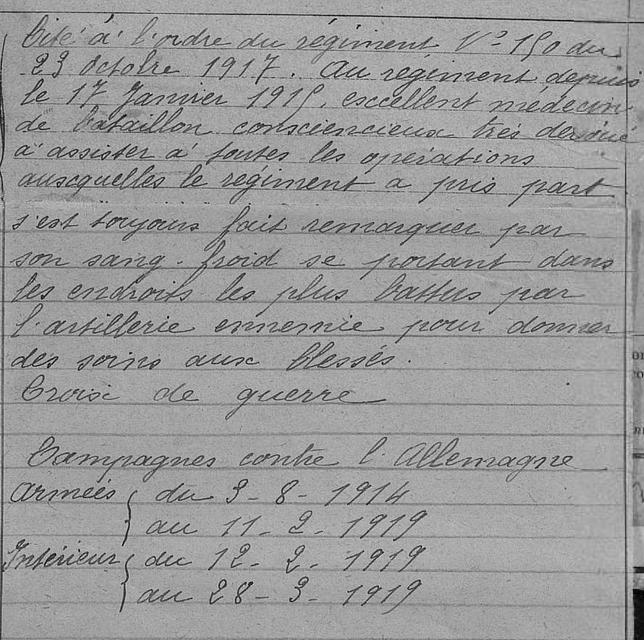 Cité à l'ordre du régiment N° 150 du
23 Octobre 1917. Au régiment depuis
le 17 Janvier 1915, excellent médecin
de bataillon consciencieux très dévoué
a assister à toutes les opérations
auxquelles le régiment a pris part
s'est toujours fait remarquer par
son sang-froid se portant dans
les endroits les plus battus par
l'artillerie ennemie pour donner
des soins aux blessés.
Croix de guerre
Campagnes contre l'Allemagne
Armées { du 3-8-1914
au 11-2-1919
Intérieur { du 12-2-1919
au 28-3-1919